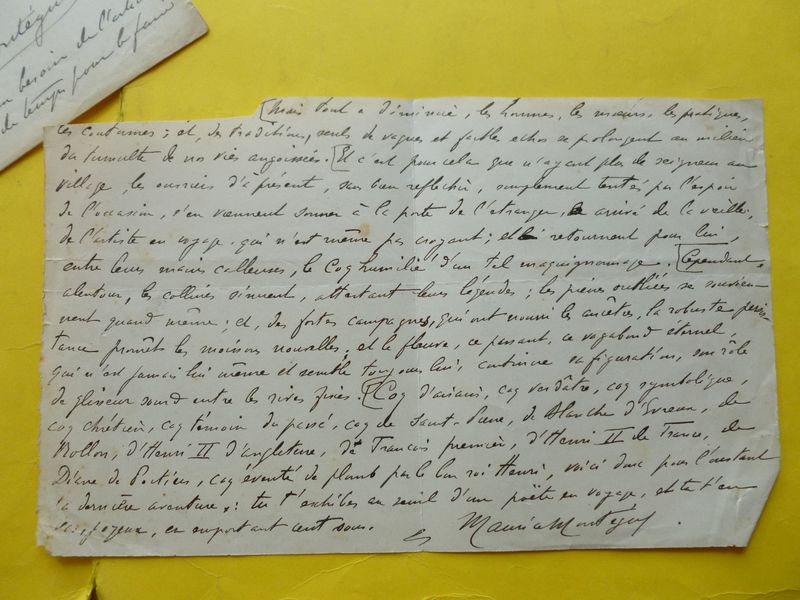 besoin de l'artiste
de temps pour le faire
[Mais tout a diminué, les hommes, les mœurs, les pratiques,
les coutumes ; et, des traditions, seuls de vagues et faibles échos se prolongent au milieu
du tumulte de nos vies angoissées. [Et c'est pour cela que n'ayant plus de seigneur au
village, les ouvriers d'à présent, sans bien réfléchir, simplement tentés par l'espoir
de l'occasion, s'en viennent sonner à la porte de l'étranger, arrivé de la veille,
de l'artiste en voyage, qui n'est même pas croyant ; et retournent pour lui,
entre leurs mains calleuses, le Coq humilié d'un tel maquignonnage. [Cependant,
alentour, les collines s'émeuvent, attestant leurs légendes ; les pierres oubliées se souvien-
nent quand même ; et, des fortes campagnes, qui ont nourri les ancêtres, la robuste persis-
tance promet les moissons nouvelles, et le fleuve, ce passant, ce vagabond éternel,
qui n'est jamais lui même et semble toujours lui, continue sa figuration, son rôle
de glisseur sourd entre les rives fixes. [Coq d'airain, coq verdâtre, coq symbolique,
coq chrétien, coq témoin du passé, coq de Saint-Pierre, de Blanche d'Evreux, de
Rollon, d'Henri II d'Angleterre, de François premier, d'Henri II de France, de
Diane de Poitiers, coq éventé de plomb par le bon roi Henri, voici donc pour l'instant
ta dernière aventure : tu t'exhibes au seuil d'un poëte en voyage, et tu t'en
joyeux, en emportant cent sous.
Maurice Montégut.